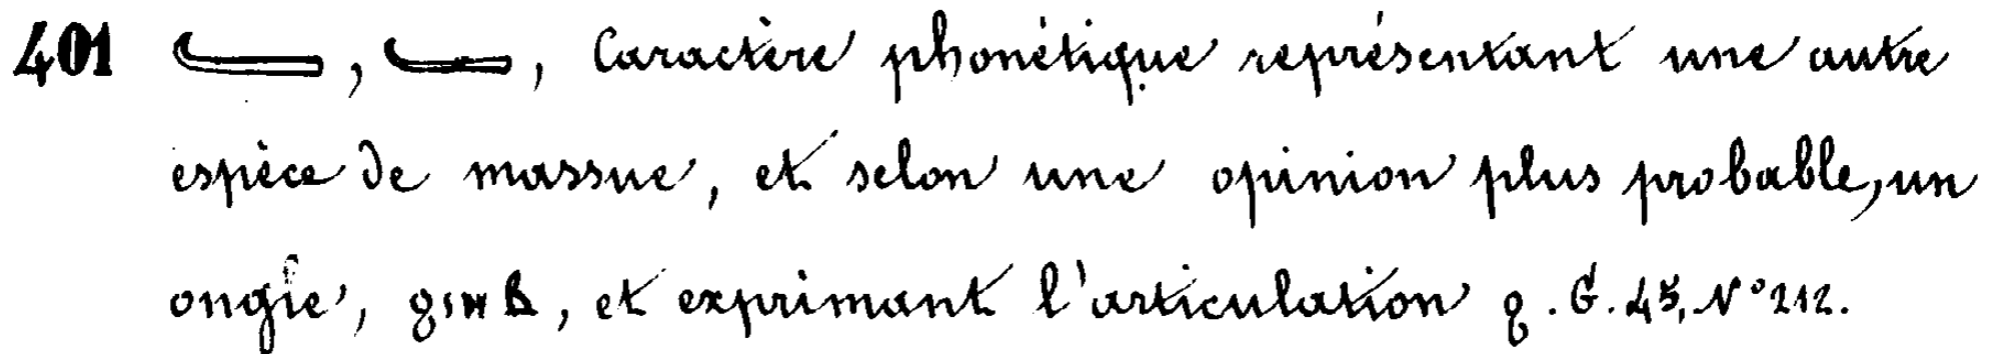 401 , , Caractère phonétique représentant une autre
espèce de massue, et selon une opinion plus probable, un
ongle, ϩⲓⲏⲃ, et exprimant l'articulation ϩ. G. 45, N° 212.